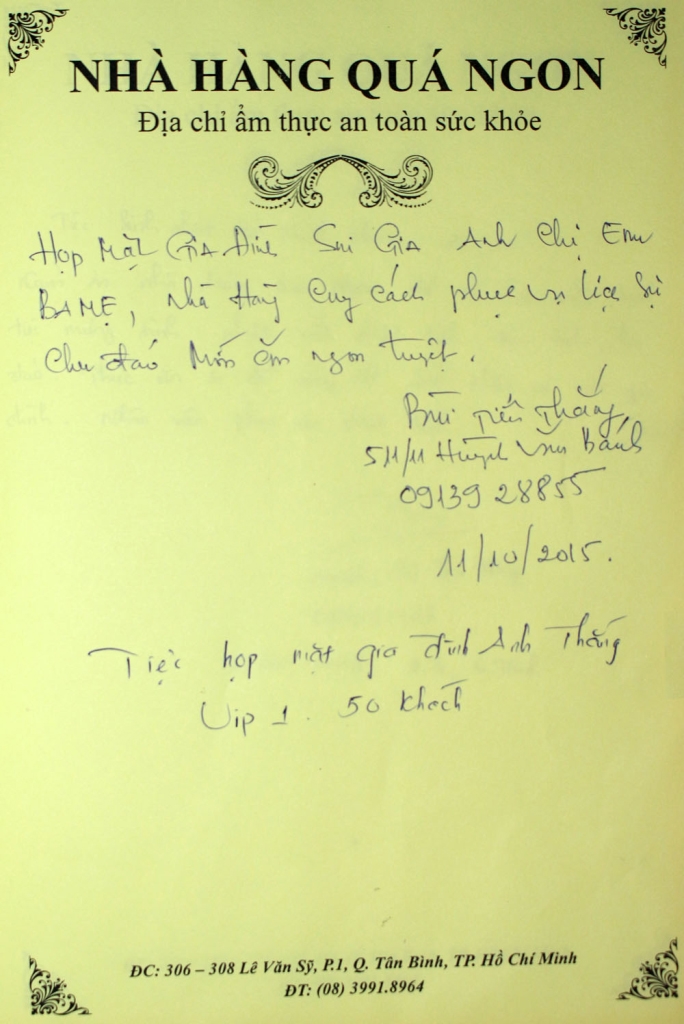 NHÀ HÀNG QUÁ NGON
Địa chỉ ẩm thực an toàn sức khỏe
Họp Mặt Gia Đình Sui Gia Anh Chị Em
BA MẸ, Nhà Hàng Cung cách phục vụ lịch sự
Chu đáo Món ăn ngon tuyệt.
Bùi Tiến Thắng
511/11 Huỳnh Văn Bánh
09139 28855
11/10/2015.
Tiệc họp mặt gia đình Anh Thắng
Vip 1. 50 khách
ĐC: 306 – 308 Lê Văn Sỹ, P.1, Q. Tân Bình, TP. Hồ Chí Minh
ĐT: (08) 3991.8964